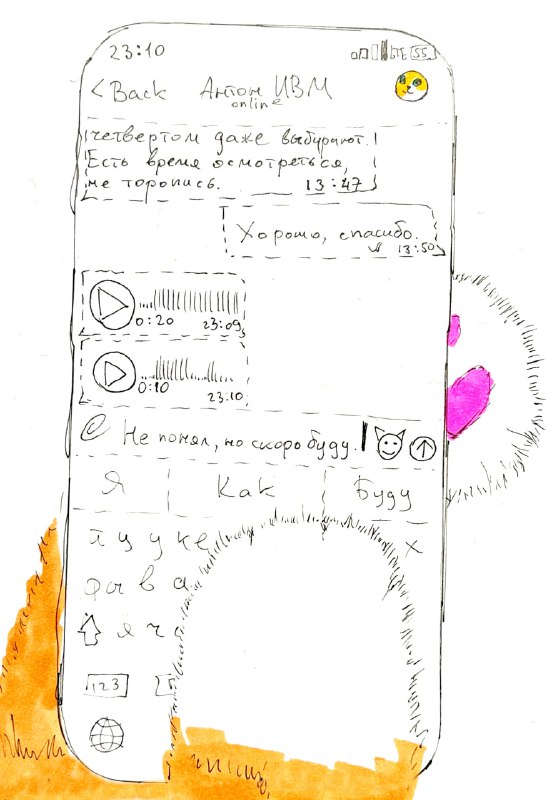 23:10 LTE 55
< Back Антон ИВМ
online
четвертом даже выбирают.
Есть время осмотреться,
не торопись. 13:47
Хорошо, спасибо.
13:50
0:20 23:09
0:10
23:10
Не понял, но скоро буду.
Я Как Буду
й ц у к е х
ф ы в а
я ч с
123